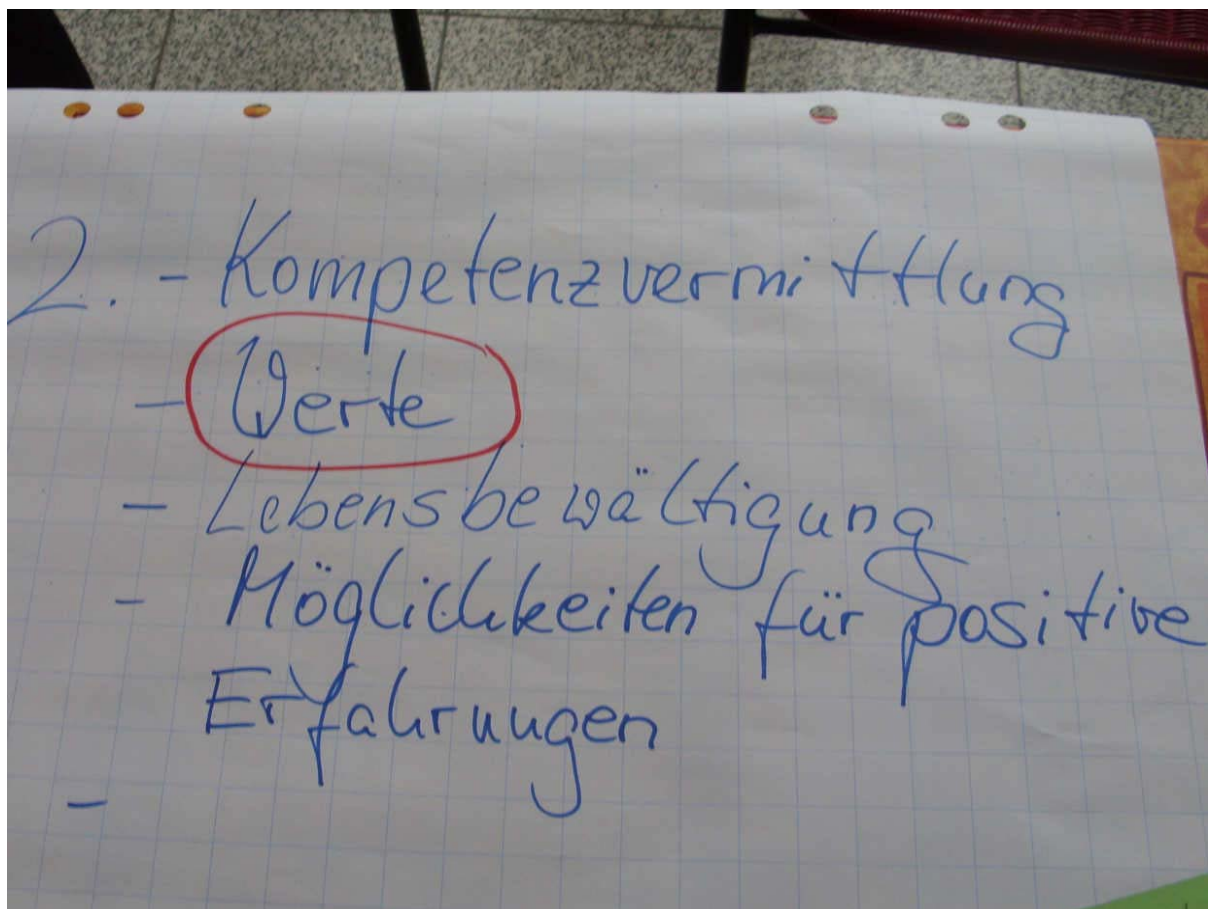 2. - Kompetenzvermittlung
- Werte
- Lebensbewältigung
- Möglichkeiten für positive
Erfahrungen
-